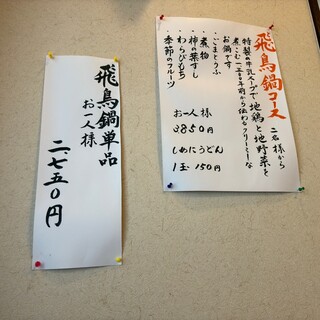 飛鳥鍋コース
二名様から
特製の牛乳スープで地鶏と地野菜を
煮こむ一三〇〇年前から伝わるクリーミーな
お鍋です
・ごまとうふ
・煮物
・柿の葉すし
・わらびもち
季節のフルーツ
お一人様
3850円
しめにうどん
1玉 150円
飛鳥鍋単品
お一人様
二七五〇円